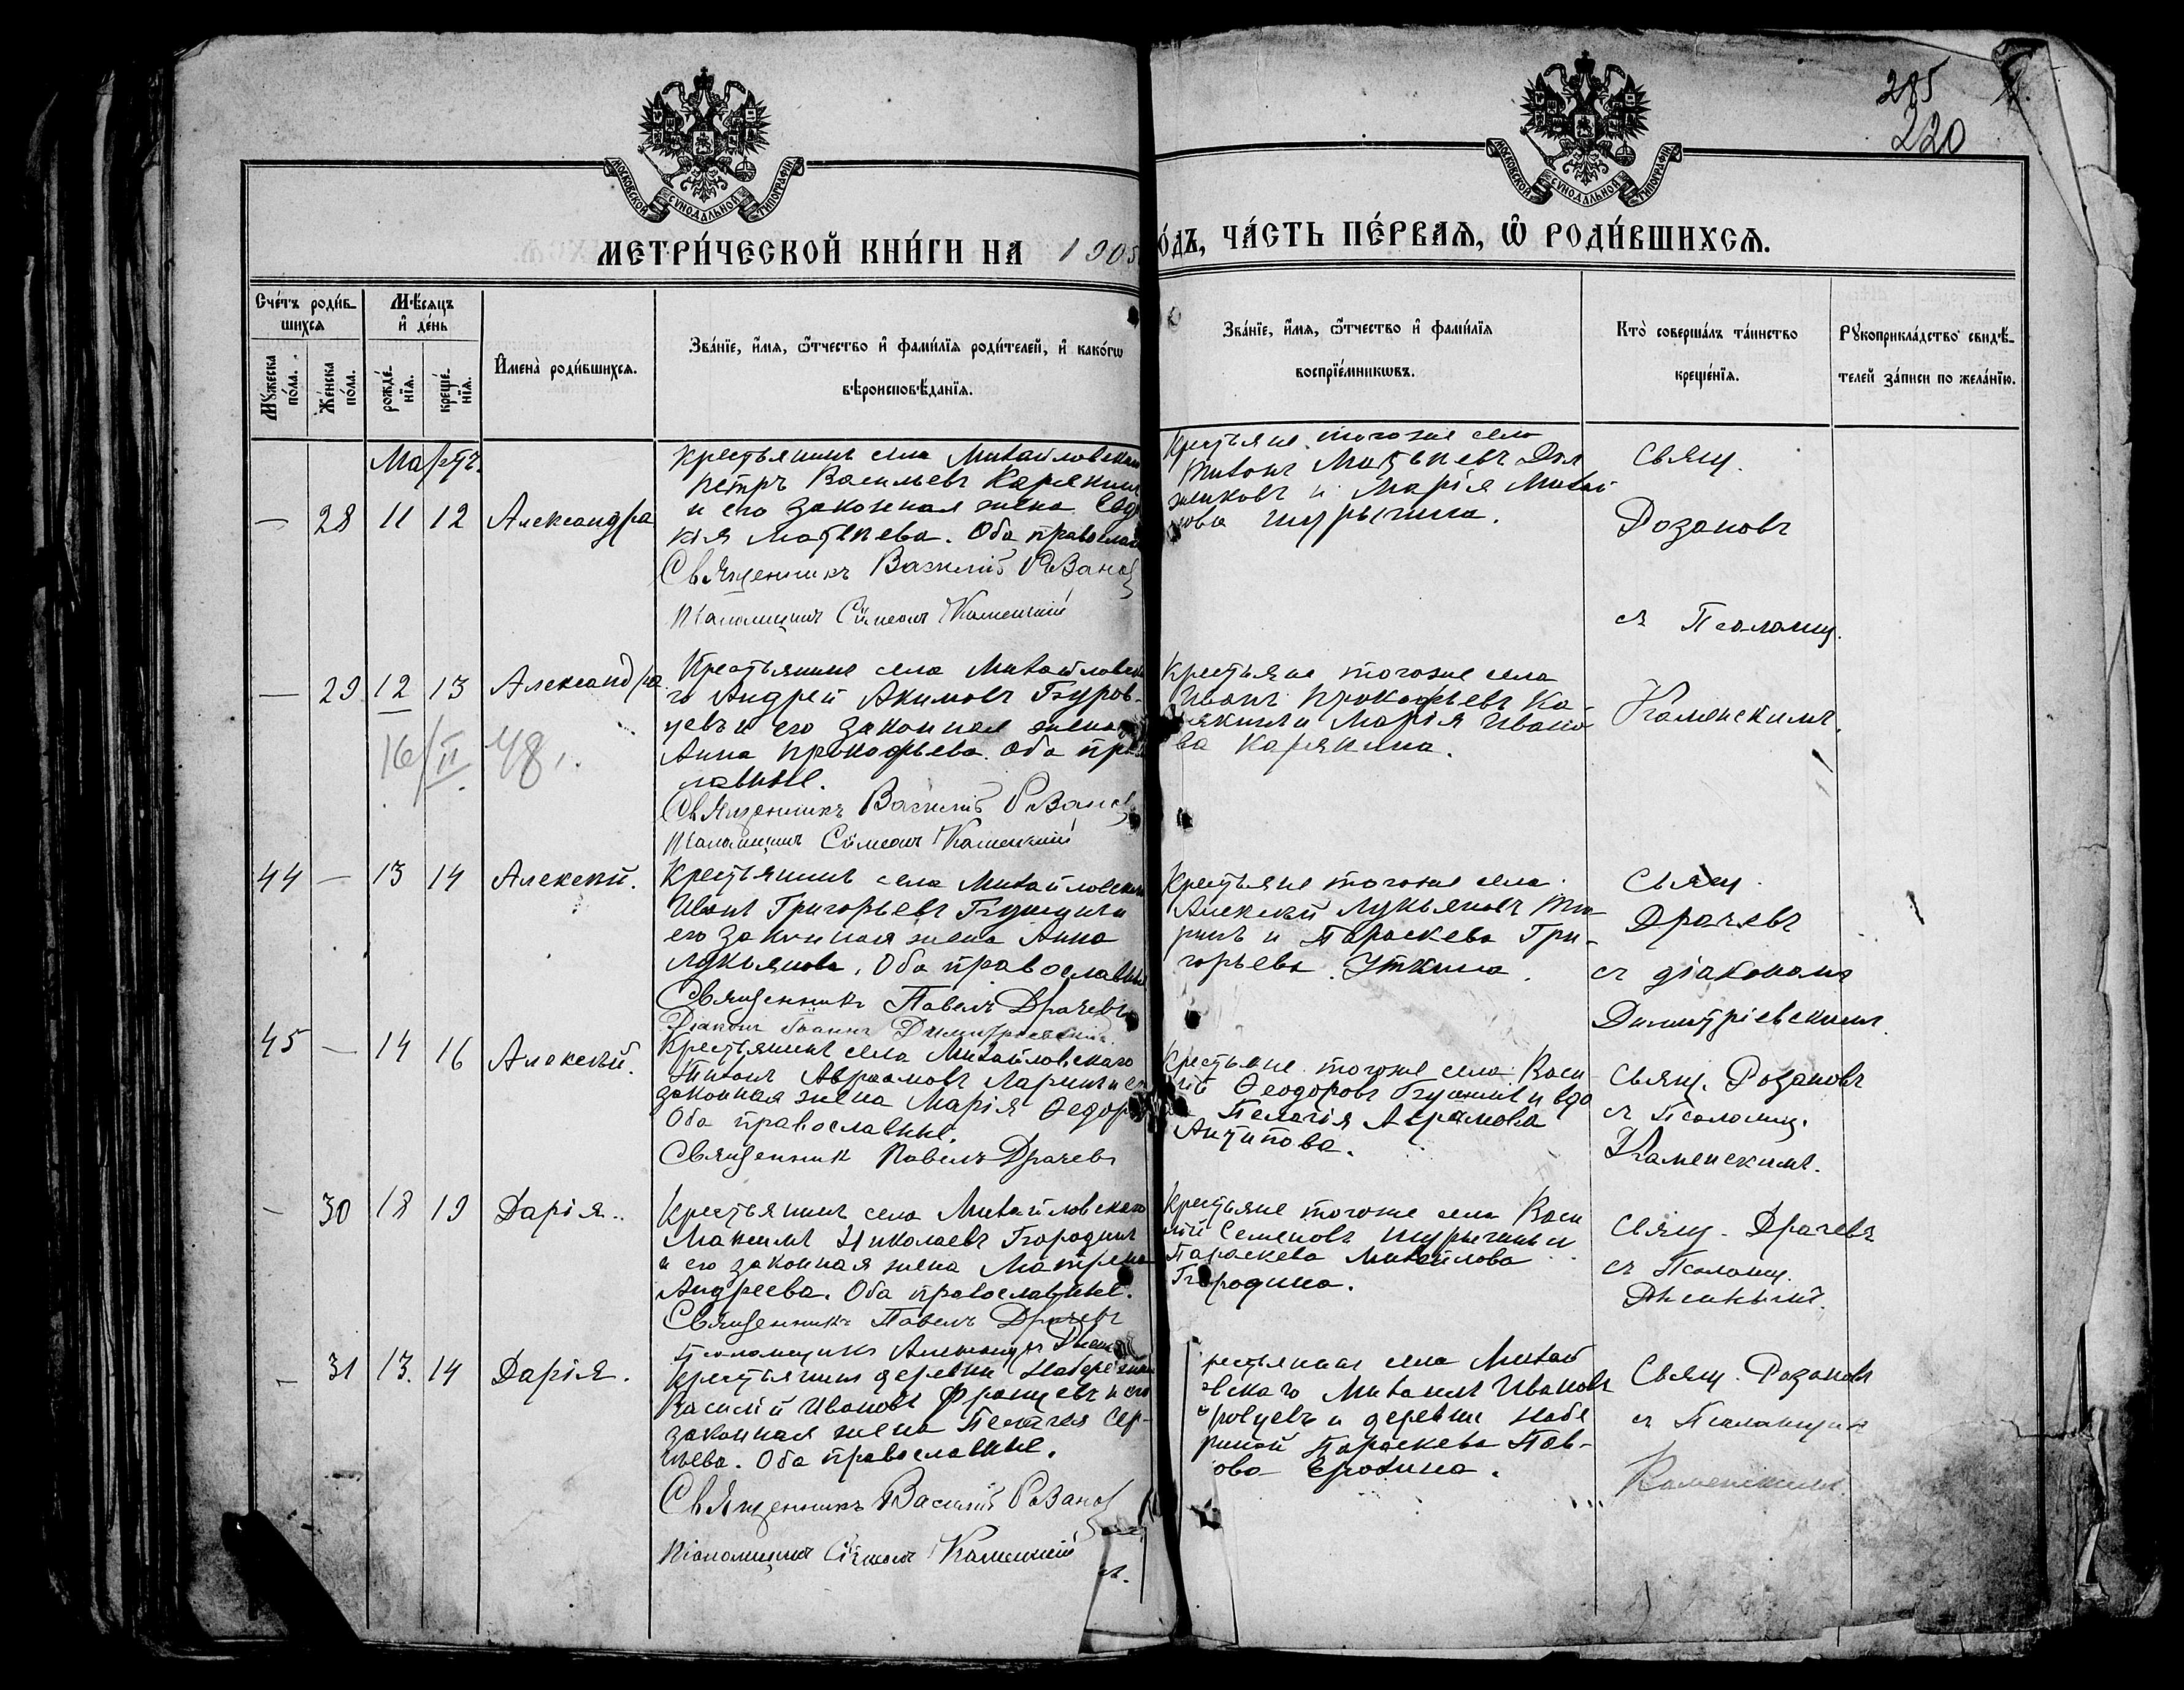 285
220
МОСКОВСКОЙ СѴНОДАЛЬНОЙ ТИПОГРАФІИ
МОСКОВСКОЙ СѴНОДАЛЬНОЙ ТИПОГРАФІИ
МЕТРИ́ЧЕСКОЙ КНИ́ГИ НА 1905
О́ДЪ, ЧА́СТЬ ПЕ́РВАѦ, Ѡ҆ РОДИ́ВШИХСѦ.
Сче́тъ роди́в-
шихсѧ
Мꙋ́жеска по́ла.
Же́нска по́ла.
Мѣ́сѧцъ
и҆ де́нь
рожде́нїѧ.
креще́нїѧ.
И҆мена̀ роди́вшихсѧ.
Зва́нїе, и҆́мѧ, ѻ҆́тчество и҆ фамн́лїѧ роди́телей, и҆ како́гѡ
вѣроисповѣ́данїѧ.
Зва́нїе, и҆́мѧ, ѻ҆́тчество и҆ фами́лїѧ
воспрїе́мникѡвъ.
Кто̀ соверша́лъ та́инство
креще́нїѧ.
Рꙋкоприкла́дство свидѣ́-
телей за́писи по жела́нїю.
Мартъ.
— 28 11 12 Александра
Крестьянинъ села Михайловскаго
Петръ Васильевъ Карякинъ
и его законная жена Евдо
кія Матѳеева. Оба православ
Священникъ Василій Розановъ
Псаломщикъ Сѵмеонъ Каменскій
Крестьяне тогоже села
Тихонъ Матѳеевъ Дол
жиковъ и Марія Михай
лова Шурыгина.
Свящ.
Розановъ
съ Псаломщ.
— 29 12 13 Александра
16/II 48.
Крестьянинъ села Михайловска
го Андрей Акимовъ Бзуров-
цевъ и его законная жена
Анна Прокофьева. Оба пра
лавные.
Священникъ Василій Розановъ
Псаломщикъ Сѵмеонъ Каменскій
Крестьяне тогоже села
Иванъ Прокофьевъ Ка-
рякинъ и Марія Ивано
ва Карякина.
Каменскимъ.
44 — 13 14 Алексѣй.
Крестьянинъ села Михайловскаго
Иванъ Григорьевъ и
его законная жена Анна
Лукьянова. Оба православные
Священникъ Павелъ Драчевъ
Діаконъ Іоаннъ Димитріевскій.
Крестьяне тогоже села
Алексѣй Лукьяновъ Тю-
ринъ и Параскева Гри-
горьева Уткина.
Свящ.
Драчевъ
съ діакономъ
Димитріевскимъ.
45 — 14 16 Алексѣй.
Крестьянинъ села Михайловскаго
Тихонъ Авраамовъ Ларинъ и его
законная жена Марія Ѳедоро
Оба православные.
Священникъ Павелъ Драчевъ
Крестьяне тогоже села Васи
лій Ѳеодоровъ и вдо
ва Пелагія Абрамова
Антипова.
Свящ. Розановъ
съ Псаломщ.
Каменскимъ.
— 30 18 19 Дарія.
Крестьянинъ села Михайловскаго
Максимъ Николаевъ
и его законная жена Матрена
Андреева. Оба православные.
Священникъ Павелъ Драчевъ
Псаломщикъ Александръ
Крестьяне тогоже села Васи
лій Семеновъ Шурыгинъ и
Параскева Михайлова
Свящ. Драчевъ
съ Псаломщ.
— 31 13. 14 Дарія.
Крестьянинъ деревни Набережной
Василій Ивановъ Фроловъ и его
законная жена Пелагея Сер-
гѣева. Оба православные.
Священникъ Василій Розановъ
Псаломщикъ Сѵмеонъ Каменскій
рестьянинъ села Михай
овскаго Михаилъ Ивановъ
ровцевъ и деревни Набе
режной Параскева Пав-
лова Ерохина.
Свящ. Розановъ
съ Псаломщик
Каменскимъ.